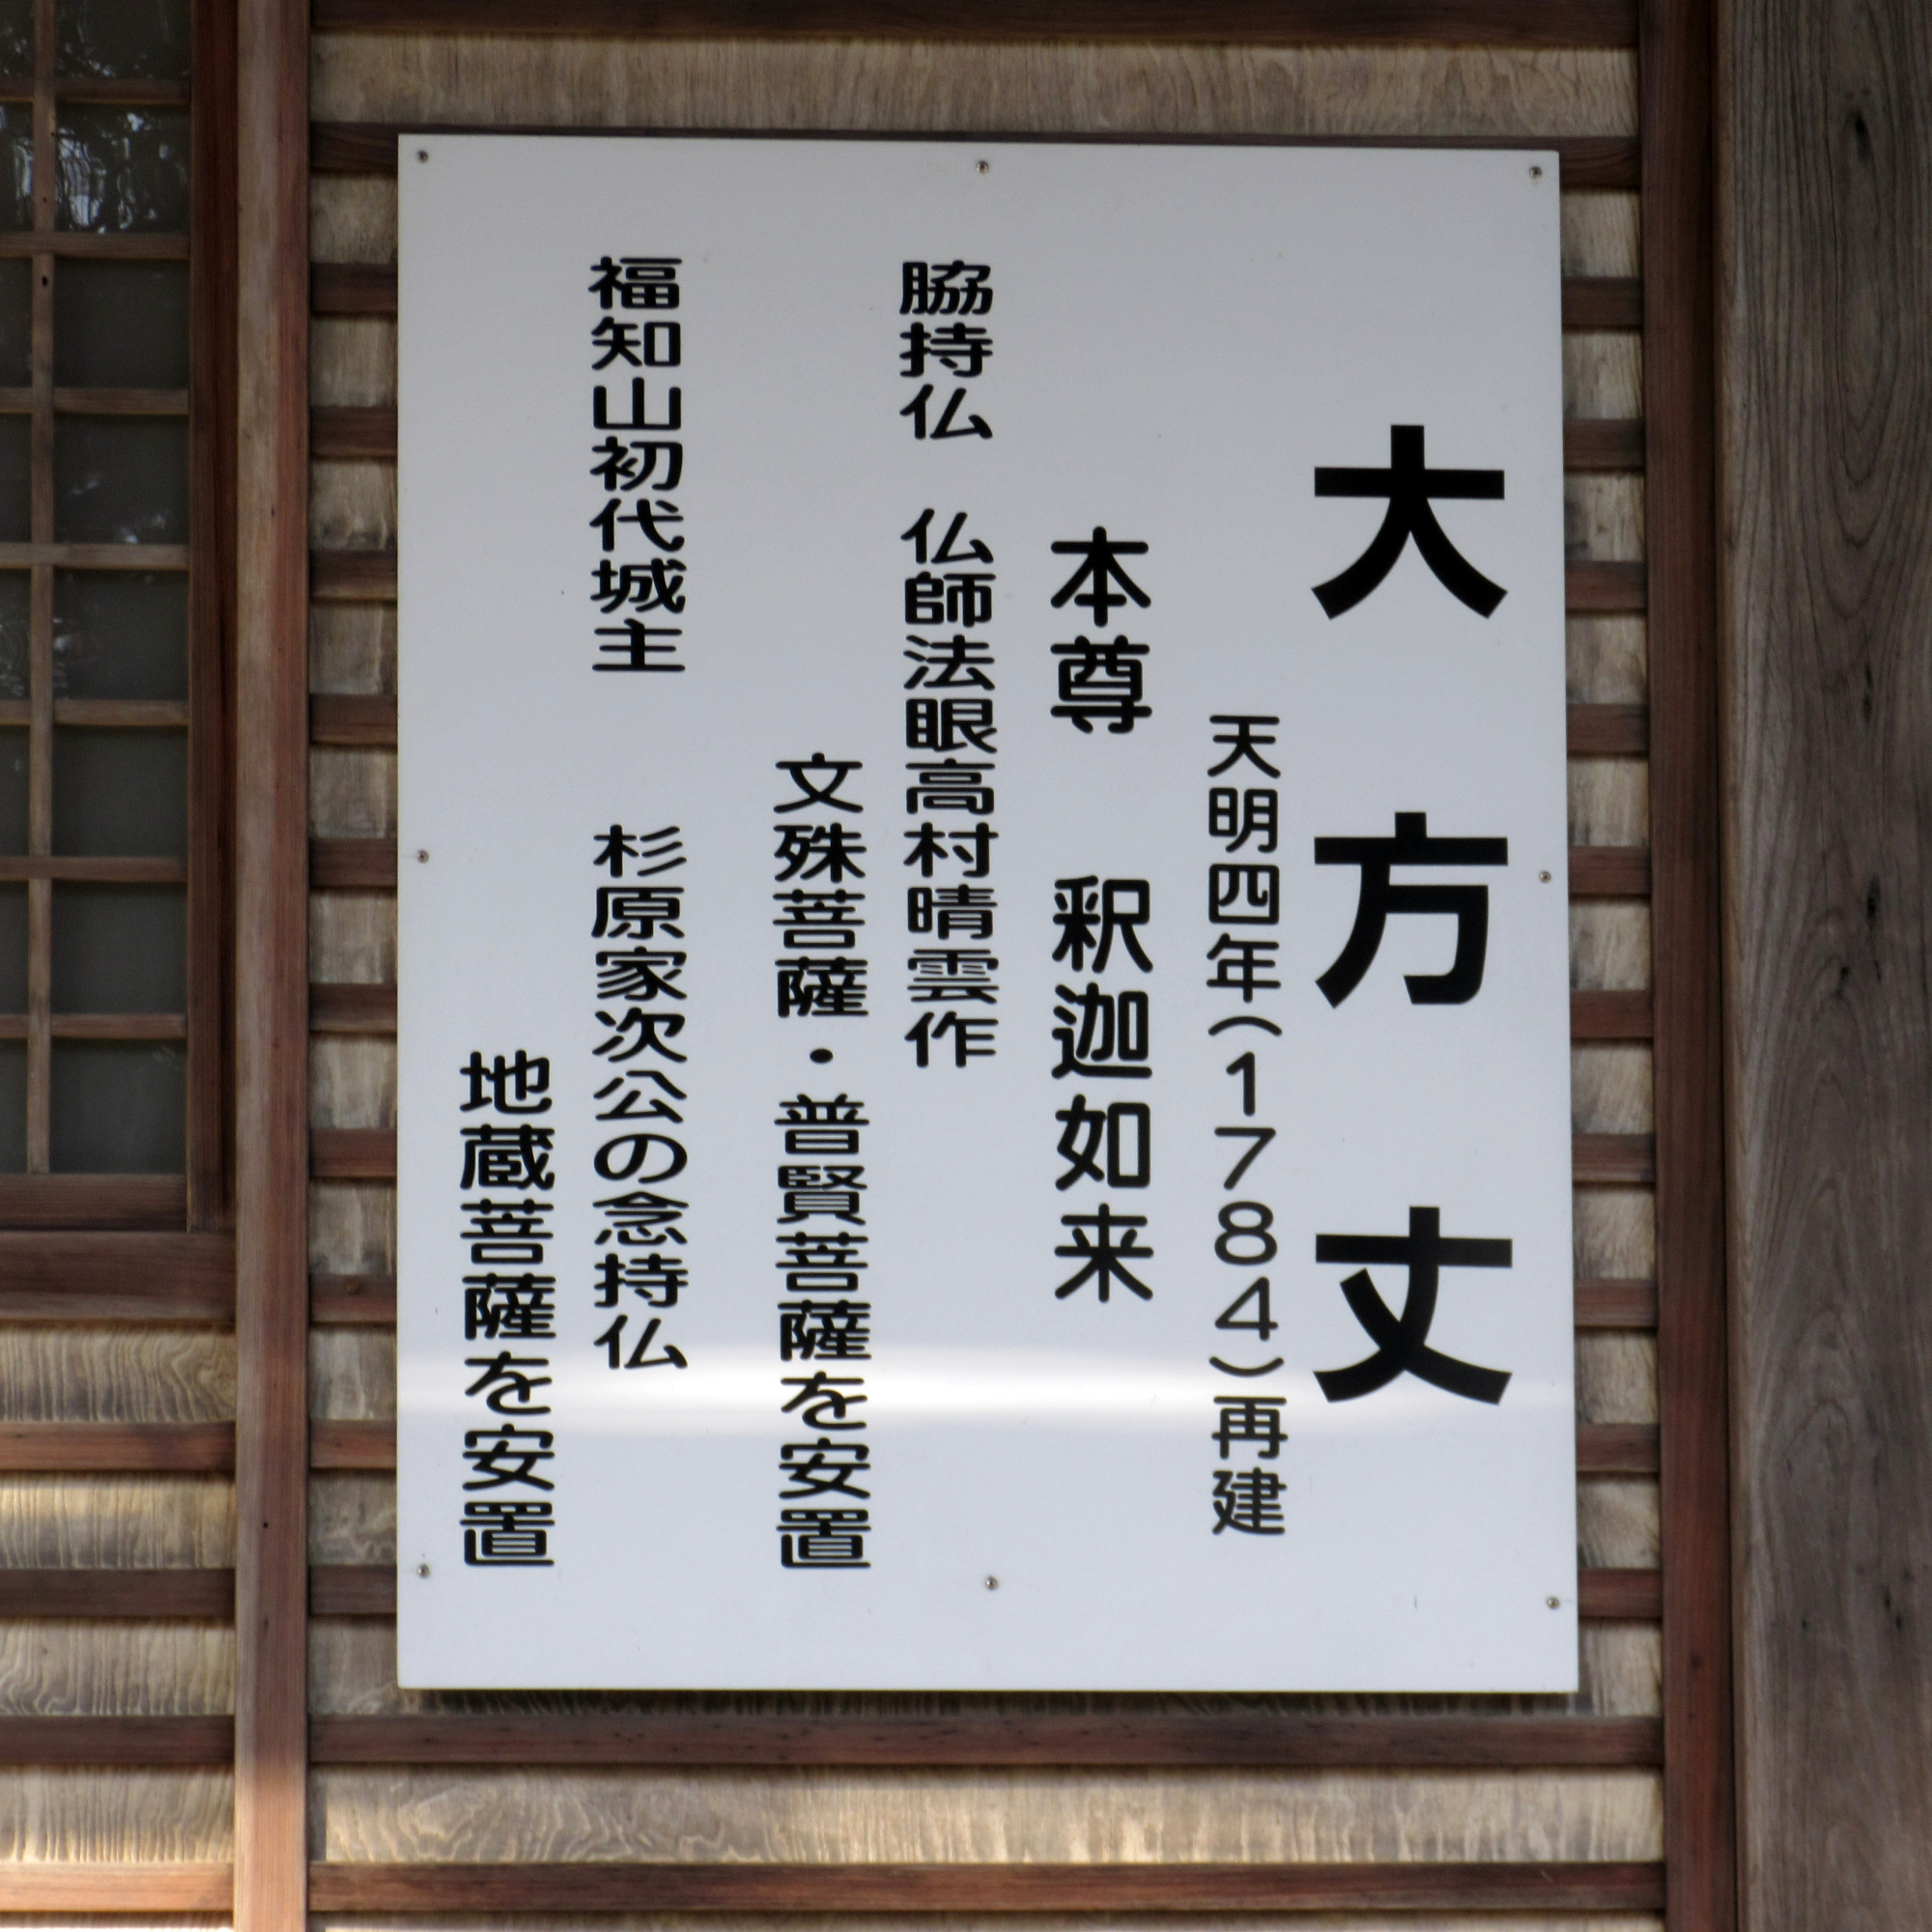 大方丈
天明四年(1784)再建
本尊　釈迦如来
脇持仏　仏師法眼高村晴雲作
文殊菩薩・普賢菩薩を安置
福知山初代城主　杉原家次公の念持仏
地蔵菩薩を安置